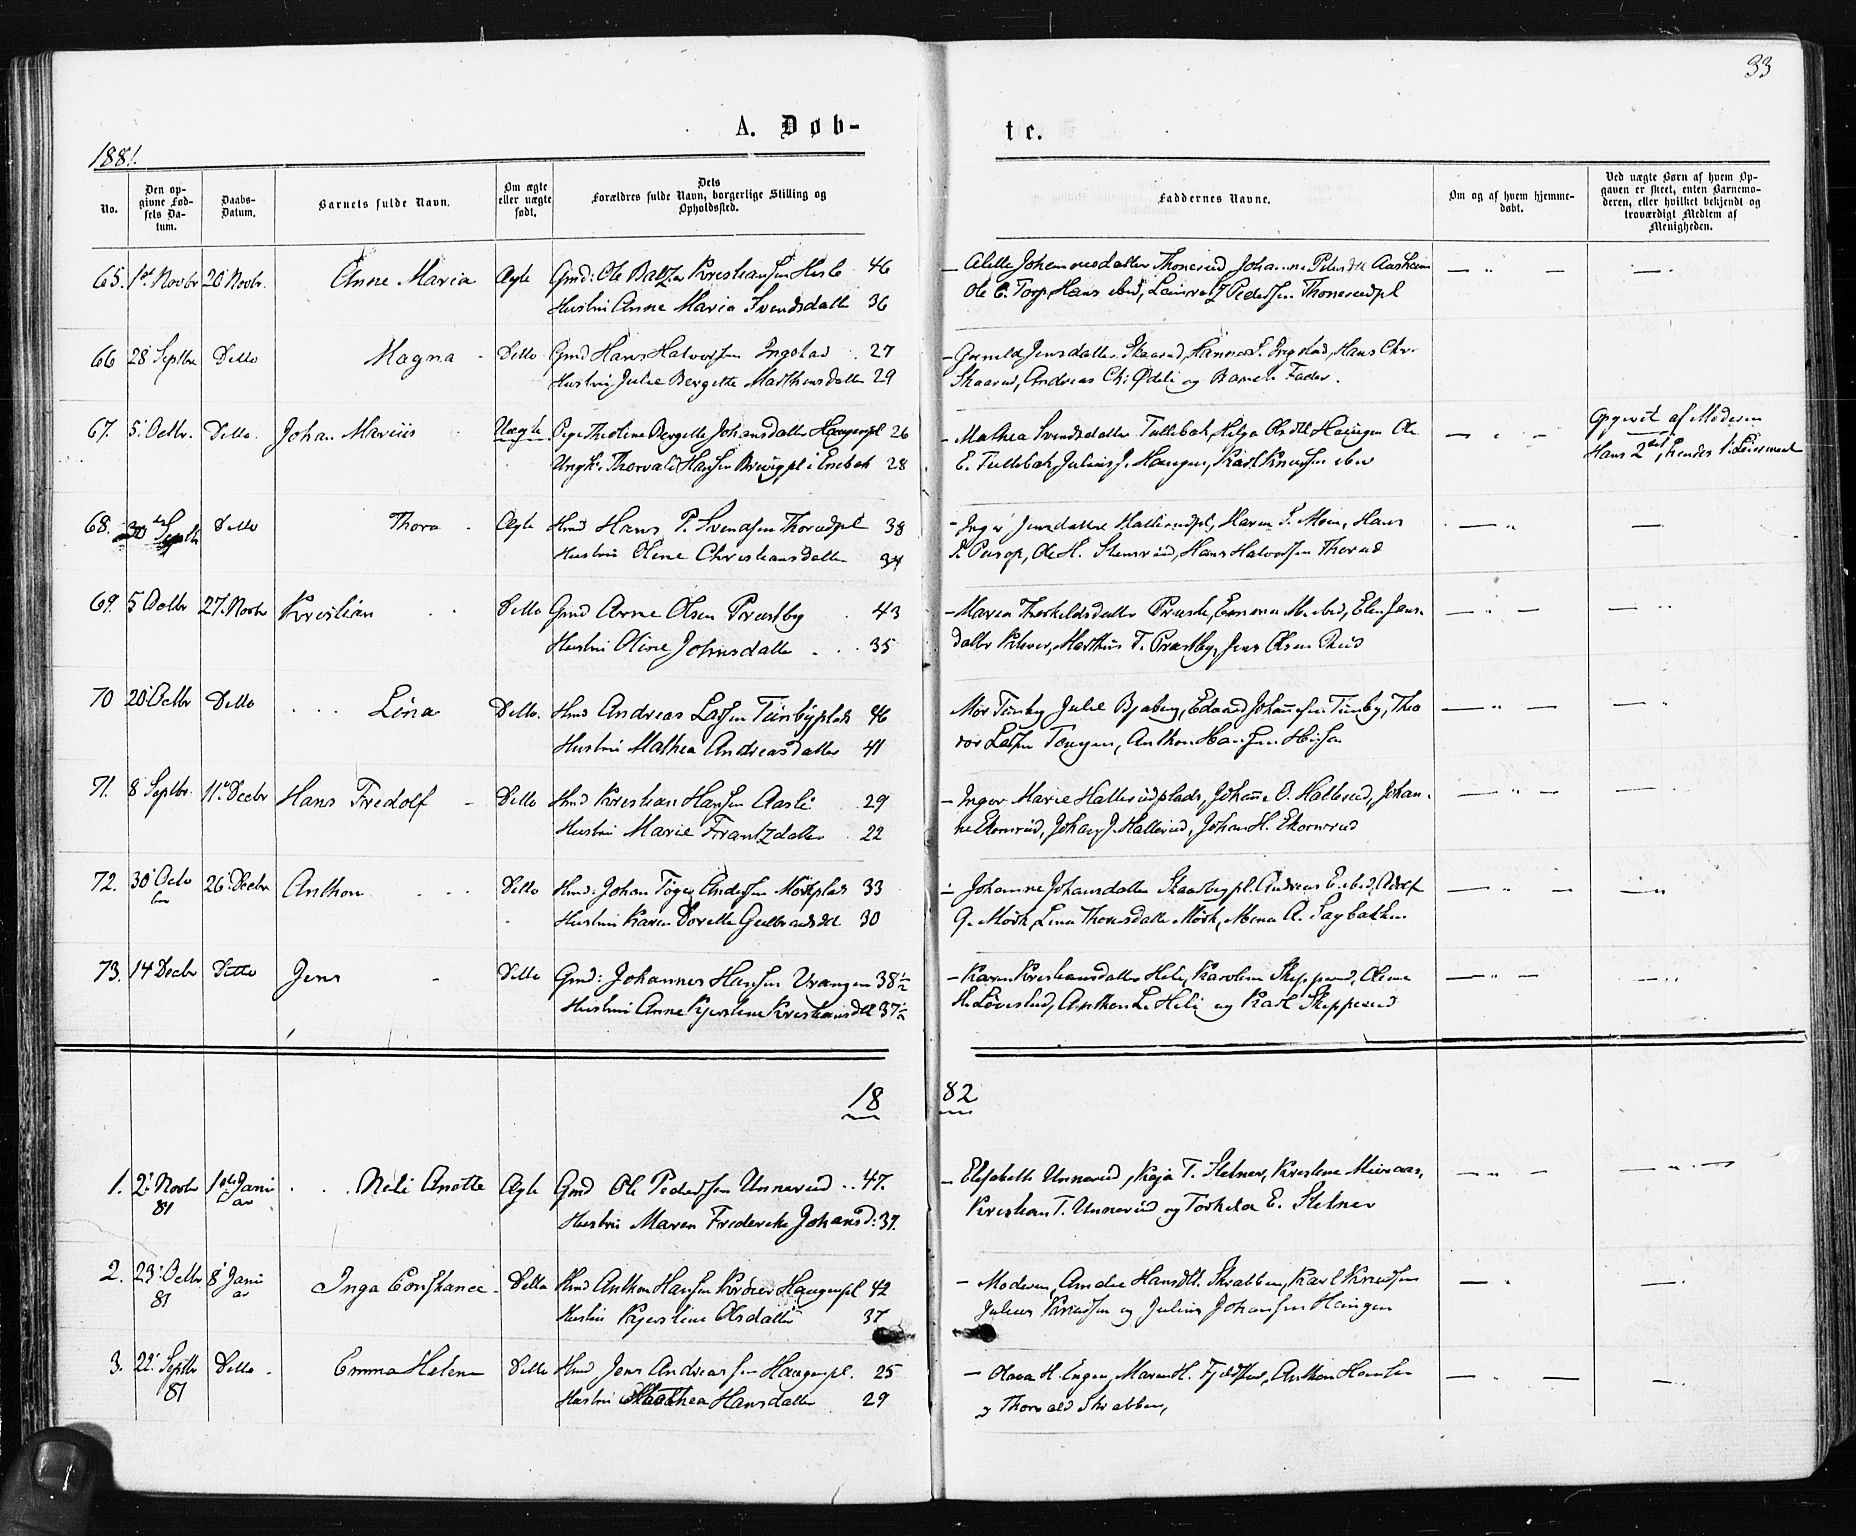 33
A. Døb-
te.
1881.
No.
Den op-
givne Fød-
sels Da-
tum.
Daabs-
Datum.
Barnets fulde Navn.
Om ægte
eller uægte
født.
Dets
Forældres fulde Navn, borgerlige Stilling og
Opholdssted.
Faddernes Navne.
Om og af hvem hjemme-
døbt.
Ved uægte Børn af hvem Op-
gaven er skeet, enten Barnemo-
deren, eller hvilket bekjendt og
troværdigt Medlem af
Menigheden.
65. 1ste Novbr 20 Novbr. Anne Maria Ægte Gmd: Ole Baltzer Kristiansen 46
Hustru Anne Maria Svendsdatter 36
Ole C. Torp, Hans ibid, Pedersen Thonerudpl
66 28 Septbr Ditto Magna Ditto Gmd Hans Halvorsen Ingstad 27
Hustru Julie Bergitte Mathiasdatter 29
Gunild Jensdatter Skaarud, Hanna Ingstad, Hans Chr.
Skaarud, Andreas Chr. Ødeli og Barnets Fader.
67. 5 Octbr. Ditto. Johan Marius Uægte Pige Theoline Bergitte Johansdatter Haugenpl 26
Ungk. Thorvald Hansen i Enebak 28
Mathea Svendsdatter Tullebak, Helga Olsdtr Haugen Ole
E. Tullebak, Julius J. Haugen, Karl Knudsen ibid
Opgivet af Moderen
Hans 2det, hendes 1. Leiermaal
68. 30 Septbr Ditto Thora Ægte Hmd Hans P. Svendsen Thorudpl 38
Hustru Oline Christiansdatter 34
Inger Jensdatter Hallerudpl, Maren S. Moen, Hans
Ole H. Stensrud, Hans Halvorsen Thorud
69. 5 Octbr 27. Novbr Kristian Ditto Gmd Arne Olsen Præstby 43
Hustru Oline Johnsdatter 35
Maren Thorkildsdatter Emma M. ibid, Elen Jens-
datter Mathias T. Præstby, Jens Olsen Rud
70 20 Octbr Ditto Lina Ditto. Hmd Andreas Larsen Tunbyplads 46
Hustru Mathea Andreasdatter 41
Mor Tunby, Julie Bjaberg, Edvard Johannesen Tunby, Theo
dor Larsen Tangen, Anthon Hansen
71. 8 Septbr. 11te Decbr Hans Fredolf Ditto Hmd Kristian Hansen Aasli 29
Hustru Marie Frantzdatter 22
Inger Marie Hallerudplads, Johanne O. Hallerud, Johan-
ne Ekornrud, Johan J. Hallerud, Johan H. Ekornrud
72. 30 Octo
ber 26 Decbr Anthon Ditto Hmd: Johan Andersen Mørkplads 33
Hustru Karen Dorthe Gulbrandsdtr 30
Johanne Johansdatter Skaarbypl. Andreas E. ibid, Adolf
G. Mørk, Lina Thoresdatter Mørk, Mina A. Sagbakken
73. 14 Decbr Ditto Jens Ditto Gmd: Johannes Hansen Vrangen 38½
Hustru Anne Kjerstine Kristiansdtr 37½
Karen Kristiansdatter Heli, Karoline Skipperud, Oline
H. Løvestad, Anthon L. Heli og Karl Skipperud
1882
1. 2. Novbr
81 1ste Janu
ar Nili Anette Ægte Gmd Ole Pedersen Unnerud 47.
Hustru Maren Fredrikke Johansd: 39.
Elisabeth Unnerud, Kaja T. Stelner, Kristine
Kristian T. Unnerud og Torkild E. Stelner
2. 23. Octbr
81 8 Janu
ar Inga Constance Ditto Hmd Anthon Hansen Haugenpl 42
Hustru Kjerstine Olsdatter 37
Moderen, Hansdtr. Skrabben, Karl Knudsen
Julius Knudsen og Julius Johansen Haugen
3. 22. Septbr
81 Ditto Emma Helene Ditto Hmd Jens Andreassen Haugenpl. 25
Hustru Mathea Hansdatter 29
Olava H. Engen, Maren H. Anthon Hansen
og Thorvald Skrabben,